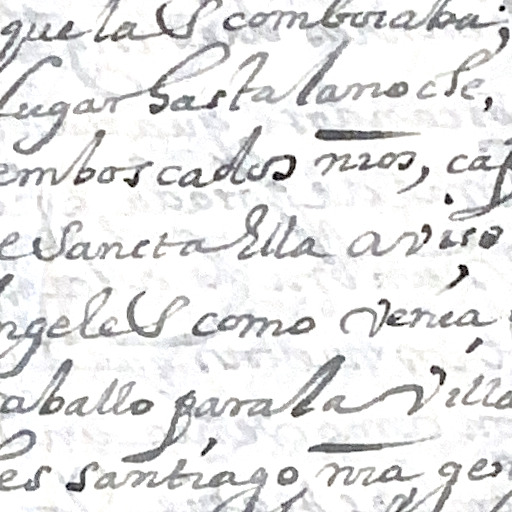 que las combiraba;
lugar hasta la noche,
emboscados nros, cap
e Sancta Ella aviso
ngeles como venia
aballo para la villa
les santiago nra gen